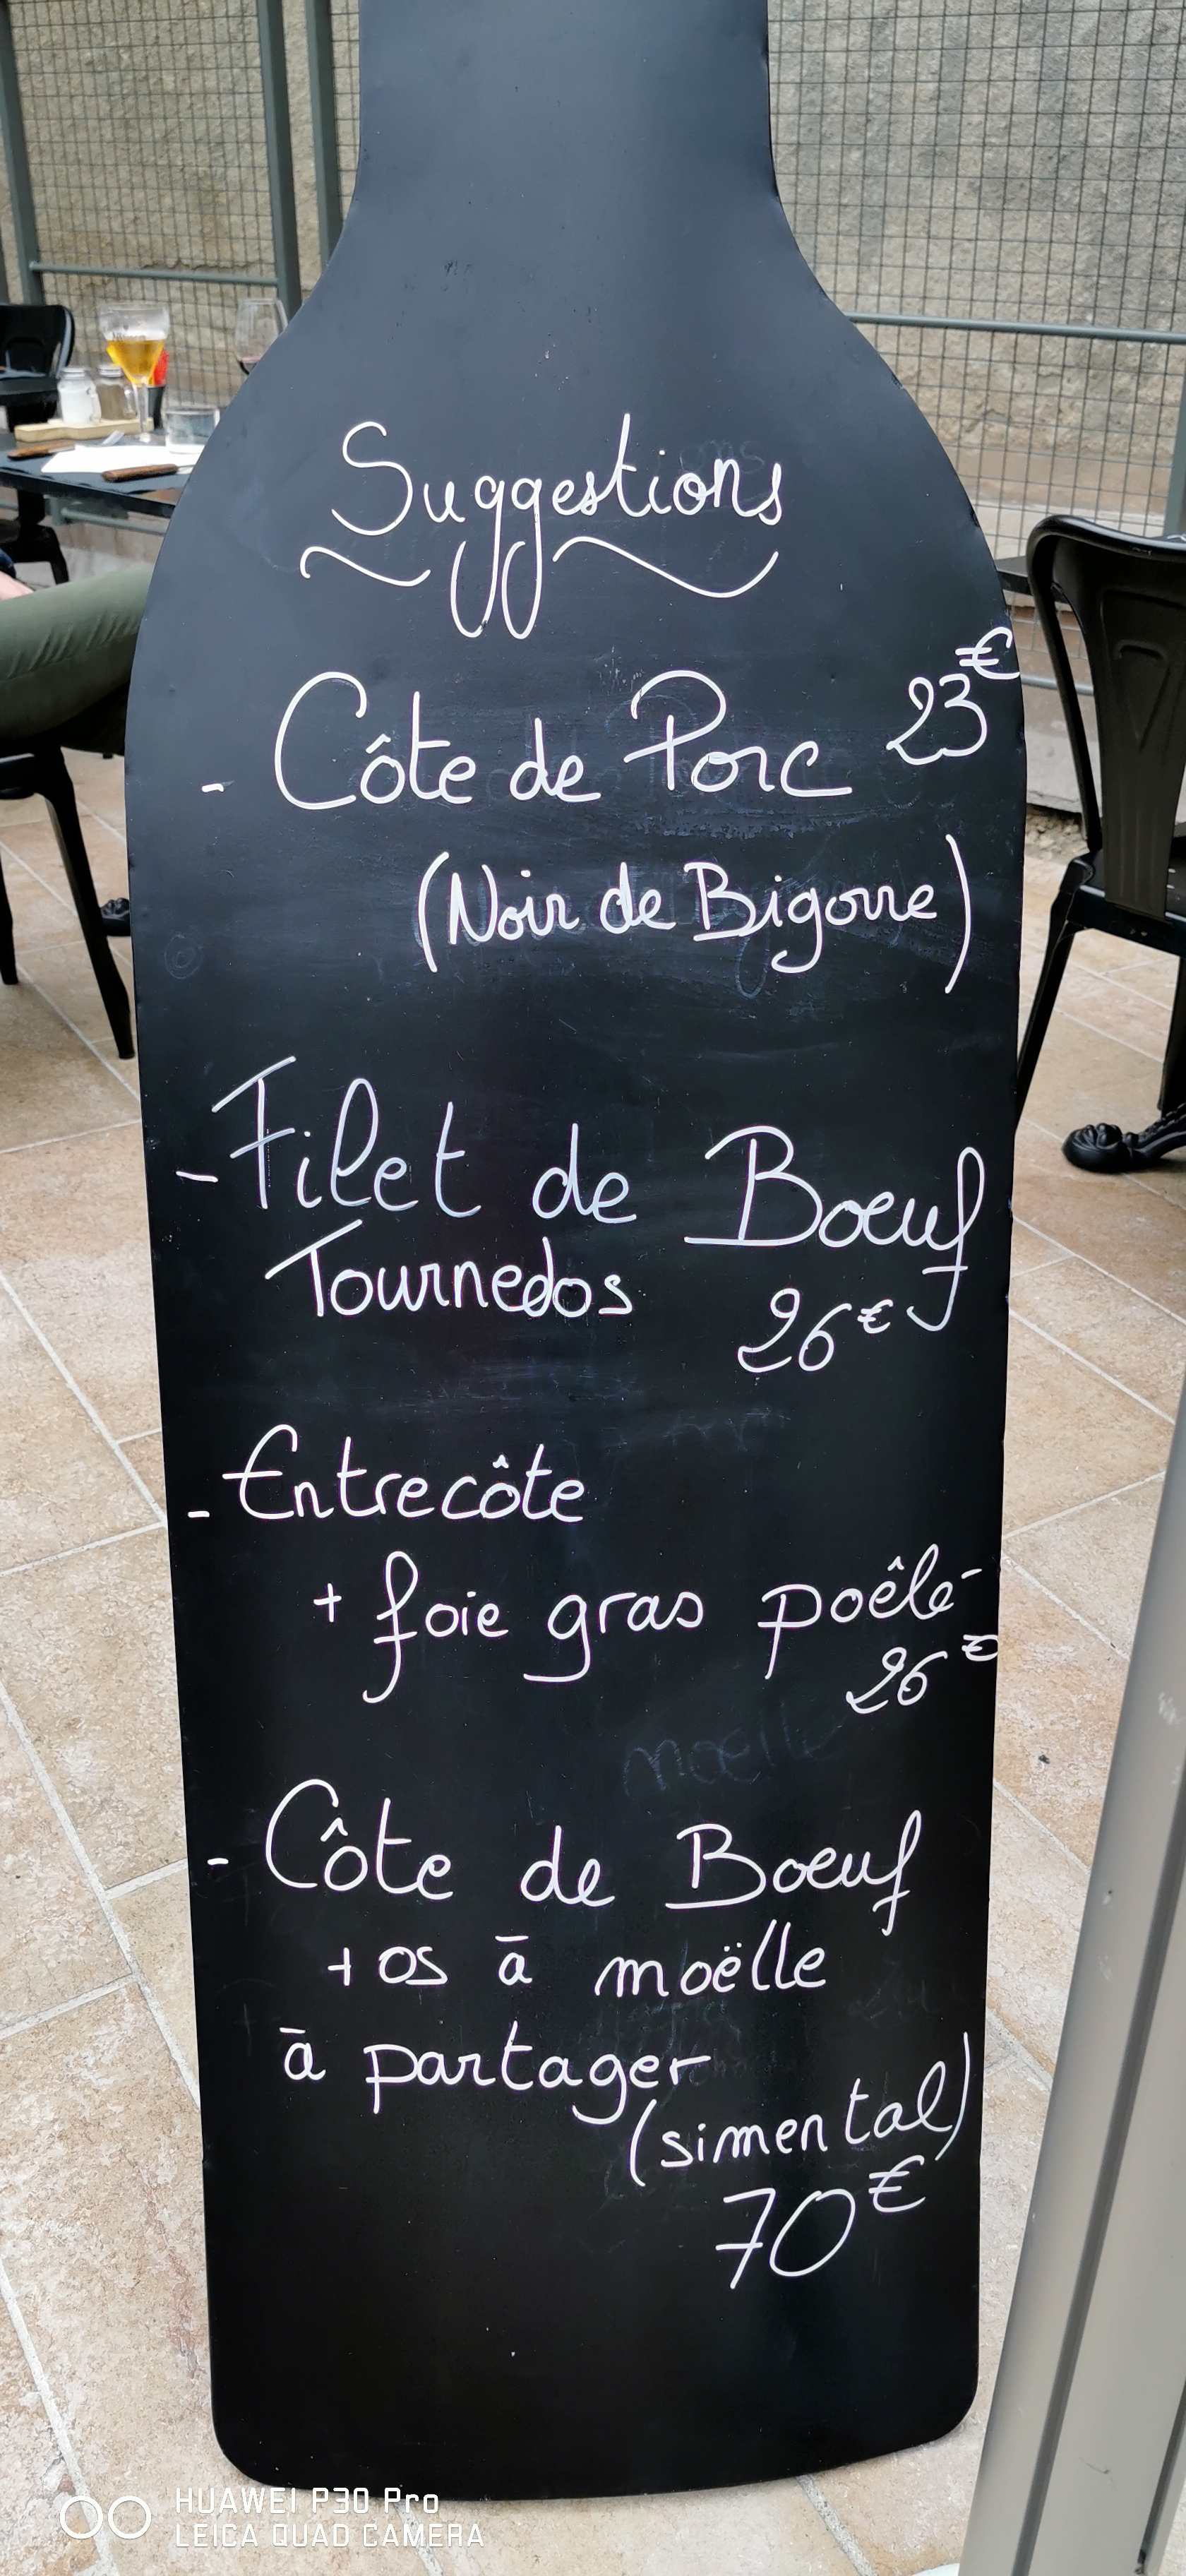 Suggestions
- Côte de Porc 23€
(Noir de Bigorre)
- Filet de Boeuf
Tournedos 26€
- Entrecôte
+ foie gras poêlé
26€
- Côte de Boeuf
+ os à moëlle
à partager
(simental)
70€
HUAWEI P30 Pro
LEICA QUAD CAMERA